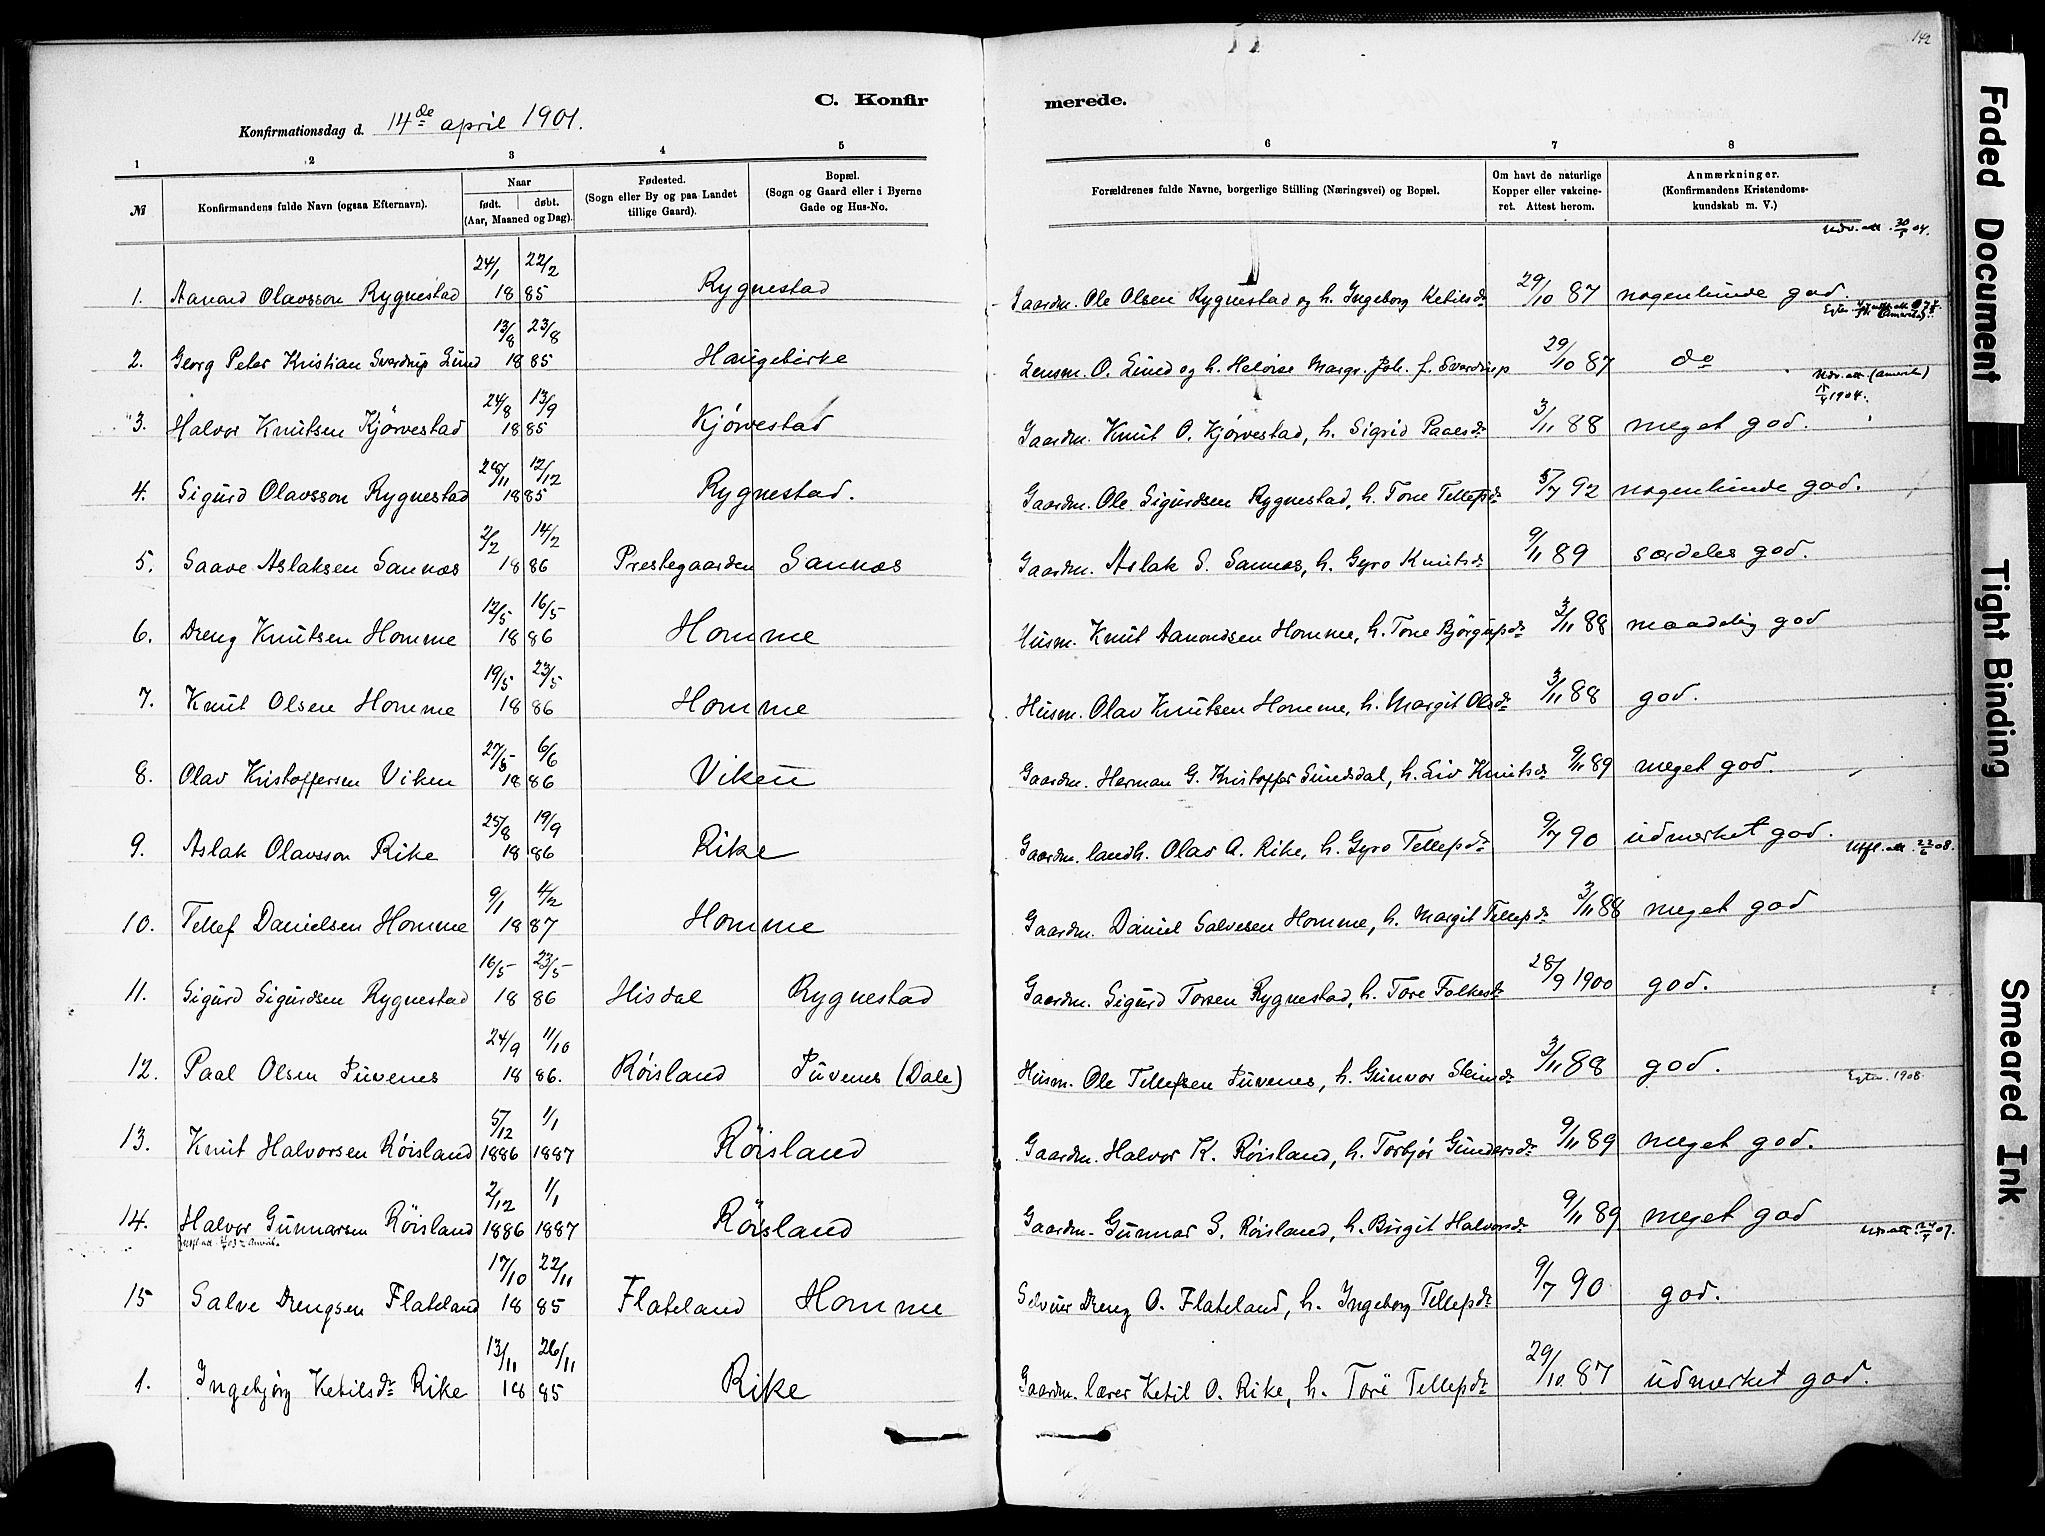 142
C. Konfirmerede.
Konfirmationsdag d. 14de april 1901.
1 2 3 4 5 6 7 8
№ Konfirmandens fulde Navn (ogsaa Efternavn). Naar født. døbt. (Aar, Maaned og Dag). Fødested. (Sogn eller By og paa Landet tillige Gaard). Bopæl. (Sogn og Gaard eller i Byerne Gade og Hus-No. Forældrenes fulde Navne, borgerlige Stilling (Næringsvei) og Bopæl. Om havt de naturlige Kopper eller vakcineret. Attest herom. Anmærkninger. (Konfirmandens Kristendomskundskab m. V.)
1. Aanond Olavsson Rygnestad 24/1 22/2 1885 Rygnestad Gaardm. Ole Olsen Rygnestad og h. Ingeborg Ketilsdr 29/10 87 nogenlunde god.
2. Georg Peter Kristian Sverdrup Lund 13/8 23/8 1885 Haugebirke Lensm. O. Lund og h. Heloise Margr. Joh. f. Sverdrup 29/10 87 do
3. Halvor Knutsen Kjørvestad 24/8 13/9 1885 Kjørvestad Gaardm. Knut O. Kjørvestad, h. Sigrid Paalsdr 3/11 88 meget god. Udv. att. (Amerika) 1904.
4. Sigurd Olavsson Rygnestad 26/11 12/12 1885 Rygnestad. Gaardm. Ole Sigurdsen Rygnestad, h. Tone Tellefsdr 5/7 92 nogenlunde god.
5. Saave Aslaksen Sannæs 2/2 14/2 1886 Prestegaarden Sannæs Gaardm. Aslak S. Sannæs, h. Gyro Knutsdr 9/11 89 særdeles god.
6. Dreng Knutsen Homme 12/5 16/5 1886 Homme Husm. Knut Aanondsen Homme, h. Tone Bjørgufsdr 3/11 88 maadelig god
7. Knut Olsen Homme 19/5 23/5 1886 Homme Husm. Olav Knutsen Homme, h. Margit Olsdr 3/11 88 god.
8. Olav Kristoffersen Viken 27/5 6/6 1886 Viken Gaardm. Herman G. Kristoffer Sundsdal, h. Liv Knutsdr 9/11 89 meget god.
9. Aslak Olavsson Rike 25/8 19/9 1886 Rike Gaardm. landh. Olav A. Rike, h. Gyro Tellefsdr 9/7 90 udmerket god. Utfl. att. 22/6 08.
10. Tellef Danielsen Homme 9/1 4/2 1887 Homme Gaardm. Daniel Salvesen Homme, h. Margit Tellefsdr 3/11 88 meget god
11. Sigurd Sigurdsen Rygnestad 16/5 23/5 1886 Hisdal Rygnestad Gaardm. Sigurd Torsen Rygnestad, h. Tore Folkesdr 28/9 1900 god.
12. Paal Olsen Juvenes 24/9 11/10 1886. Røisland Juvenes (Dale) Husm. Ole Tellefsen Juvenes, h. Gunvor Steinsdr 3/11 88 god. 1908
13. Knut Halvorsen Røisland 5/12 1886 1/1 1887 Røisland Gaardm. Halvor K. Røisland, h. Torbjør Gundersdr 9/11 89 meget god.
14. Halvor Gunnarsen Røisland 2/12 1886 1/1 1887 Røisland Gaardm. Gunnar S. Røisland, h. Birgit Halvorsdr 9/11 89 meget god
15 Salve Drengsen Flateland 17/10 22/11 1885 Flateland Homme Selveier Dreng O. Flateland, h. Ingeborg Tellefsdr 9/7 90 god.
1. Ingebjørg Ketilsdr Rike 13/11 26/11 1885 Rike Gaardm. lærer Ketil O. Rike, h. Tore Tellefsdr 29/10 87 udmerket god.
Faded Document
Tight Binding
Smeared Ink